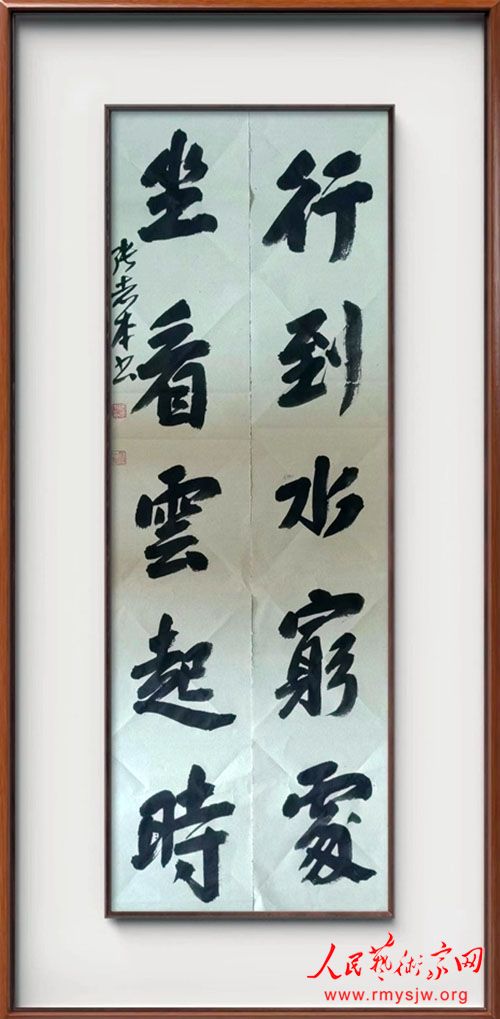 行到水窮處
坐看雲起時
张志本书
人民藝術家网
www.rmysjw.org